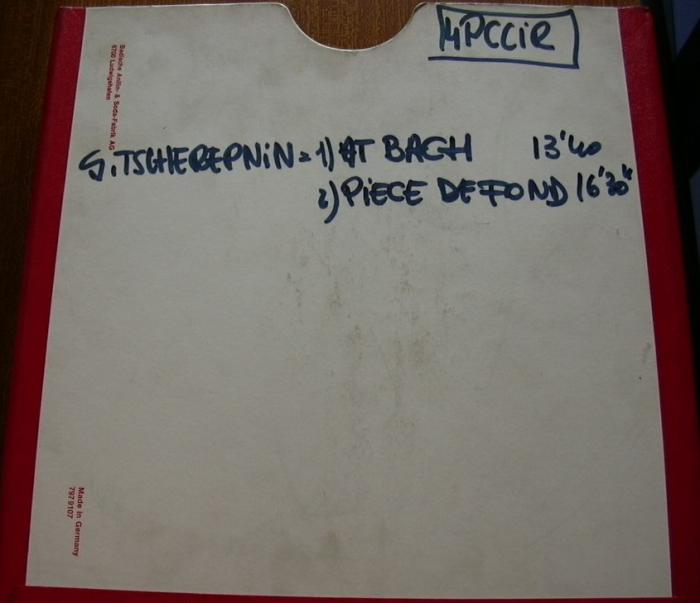 4PCCIR
Badische Anilin- & Soda-Fabrik AG
6700 Ludwigshafen
S. TSCHEREPNIN = 1) AT BACH 13'40
2) PIECE DE FOND 16'30"
Made in Germany
797 9107